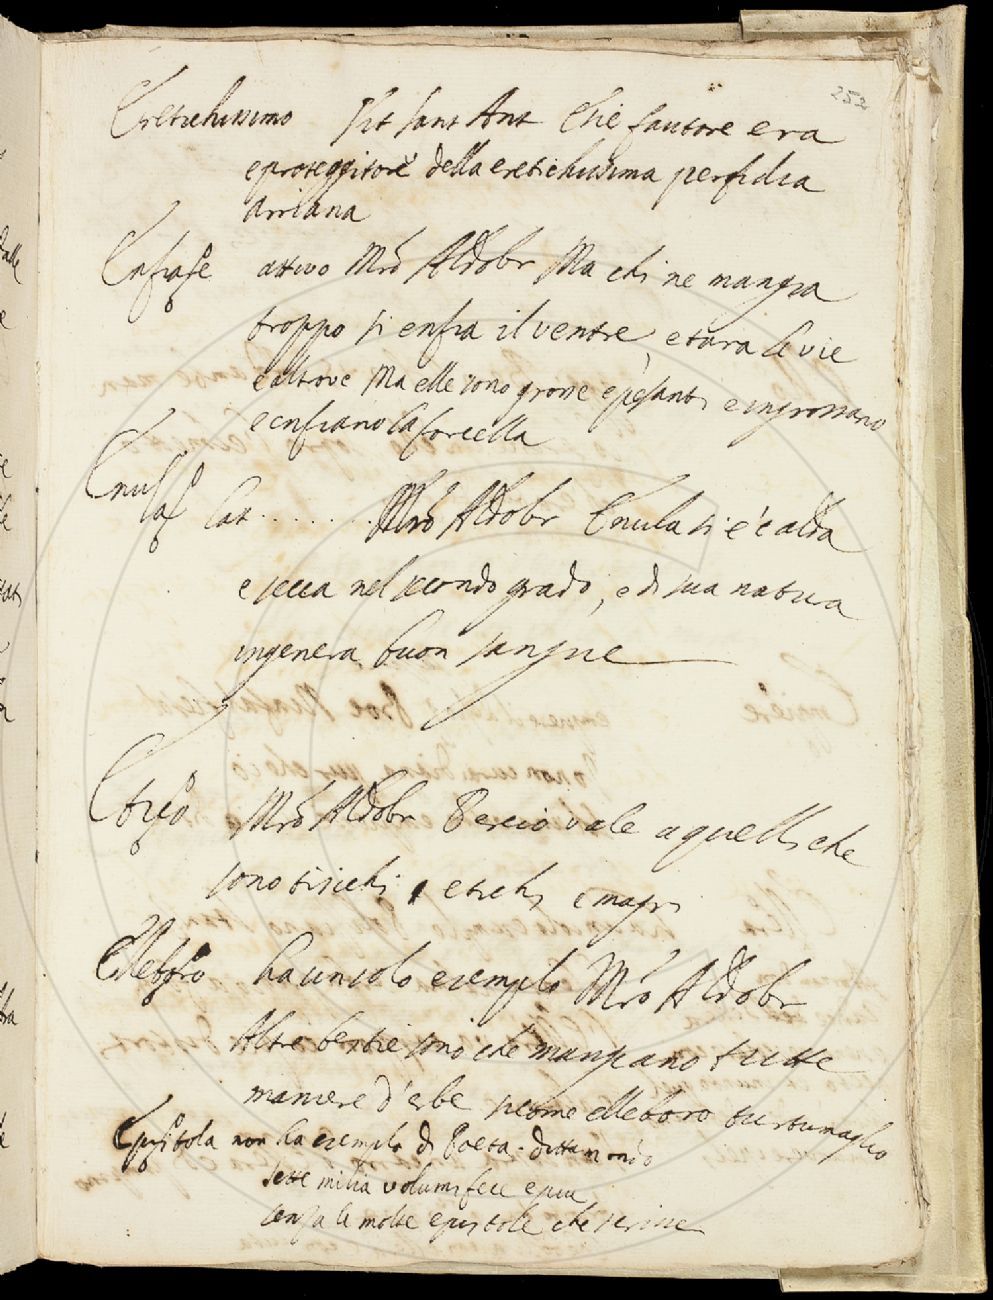 252
Eretichissimo Vit sant Ant Che fautore era
e proteggitore della eretichissima perfidia
arriana
Enfiare attivo Mrõ Aldobr Ma chi ne mangia
troppo si enfia il ventre, e tura le vie
e altrove Ma elle sono grosse e pesanti e ingrossano
e enfiano la forcella
Enula lat. . . . . . . Mrõ Aldobr Enula si è calda
e secca nel secondo grado, e di sua natura
ingenera buon sangue
Etico Mrõ Aldobr Percio vale a quelli che
sono tisichi, etichi e magri
Elleboro ha un solo esemplo Mrõ Aldobr
Altre bestie sono che mangiano tutte
maniere d'erbe siccome elleboro turtumaglio
Epistola non ha esemplo di Poeta. dittamondo
sette milia volumi fece e piu
senza le molte epistole che scrisse